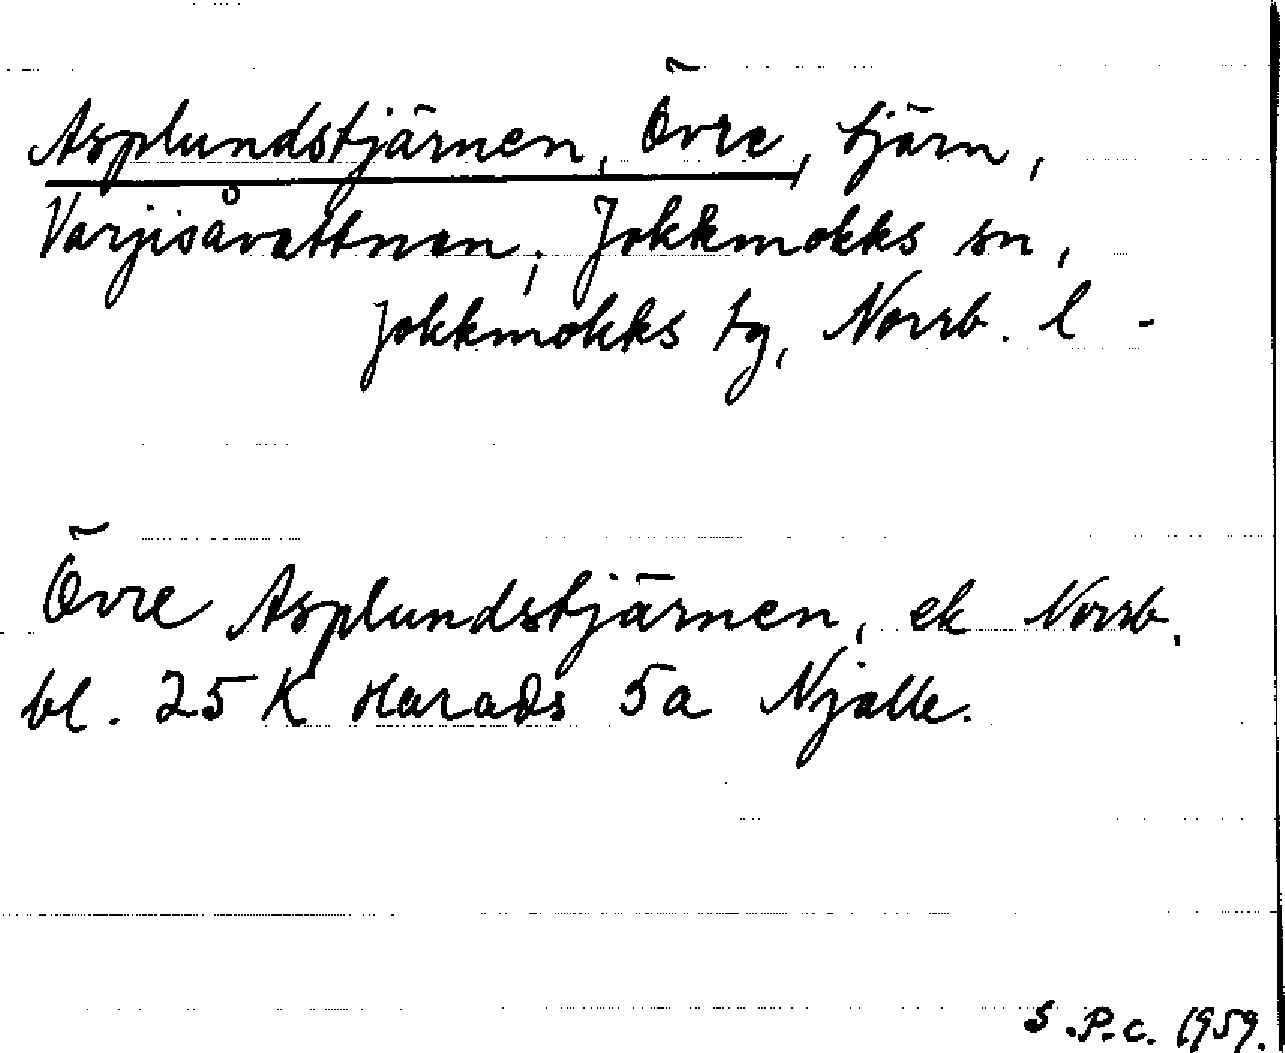 Asplundstjärnen, Övre, tjärn,
Varjisåvattnen, Jokkmokks sn,
Jokkmokks tg, Norrb. l -
Övre Asplundstjärnen, ek Norrb.
bl. 25 K Harads 5a Njalle.
S.P.c. 1959.